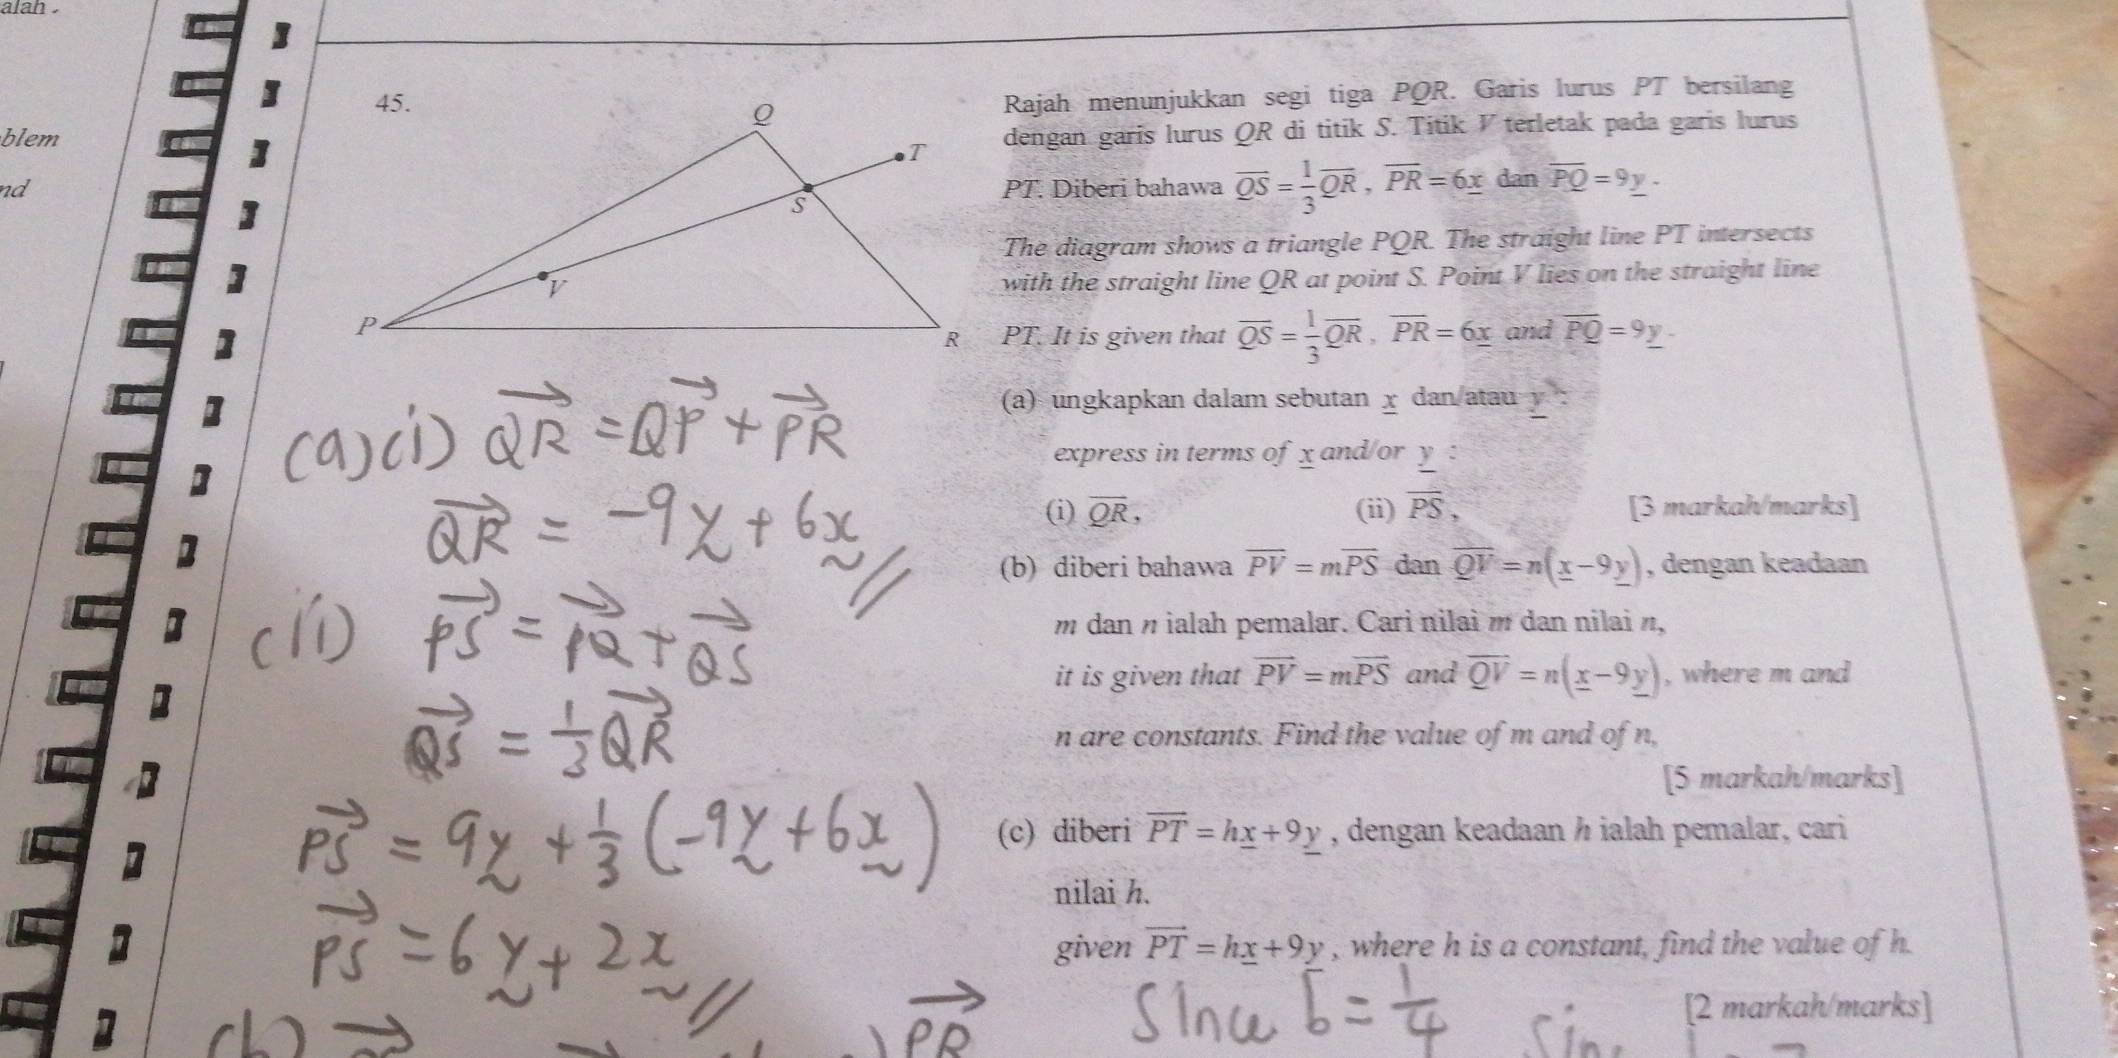 alah.
blem
nd
45.
Q
T
S
V
P
R
Rajah menunjukkan segi tiga PQR. Garis lurus PT bersilang
dengan garis lurus QR di titik S. Titik V terletak pada garis lurus
PT. Diberi bahawa QS = 1/3 QR , PR = 6x dan PQ = 9y .
The diagram shows a triangle PQR. The straight line PT intersects
with the straight line QR at point S. Point V lies on the straight line
PT. It is given that QS = 1/3 QR , PR = 6x and PQ = 9y .
(a) ungkapkan dalam sebutan x dan/atau y :
express in terms of x and/or y :
(i) QR , (ii) PS , [3 markah/marks]
(b) diberi bahawa PV = mPS dan QV = n(x − 9y) , dengan keadaan
m dan n ialah pemalar. Cari nilai m dan nilai n,
it is given that PV = mPS and QV = n(x − 9y) , where m and
n are constants. Find the value of m and of n,
[5 markah/marks]
(c) diberi PT = hx + 9y , dengan keadaan h ialah pemalar, cari
nilai h.
given PT = hx + 9y , where h is a constant, find the value of h.
[2 markah/marks]
(a)(i) QR = QP + PR
QR = -9y + 6x //
(ii) PS = PQ + QS
QS = 1/3 QR
PS = 9y + 1/3 (-9y + 6x)
PS = 6y + 2x //
(b)
PR
Since b = 1/4